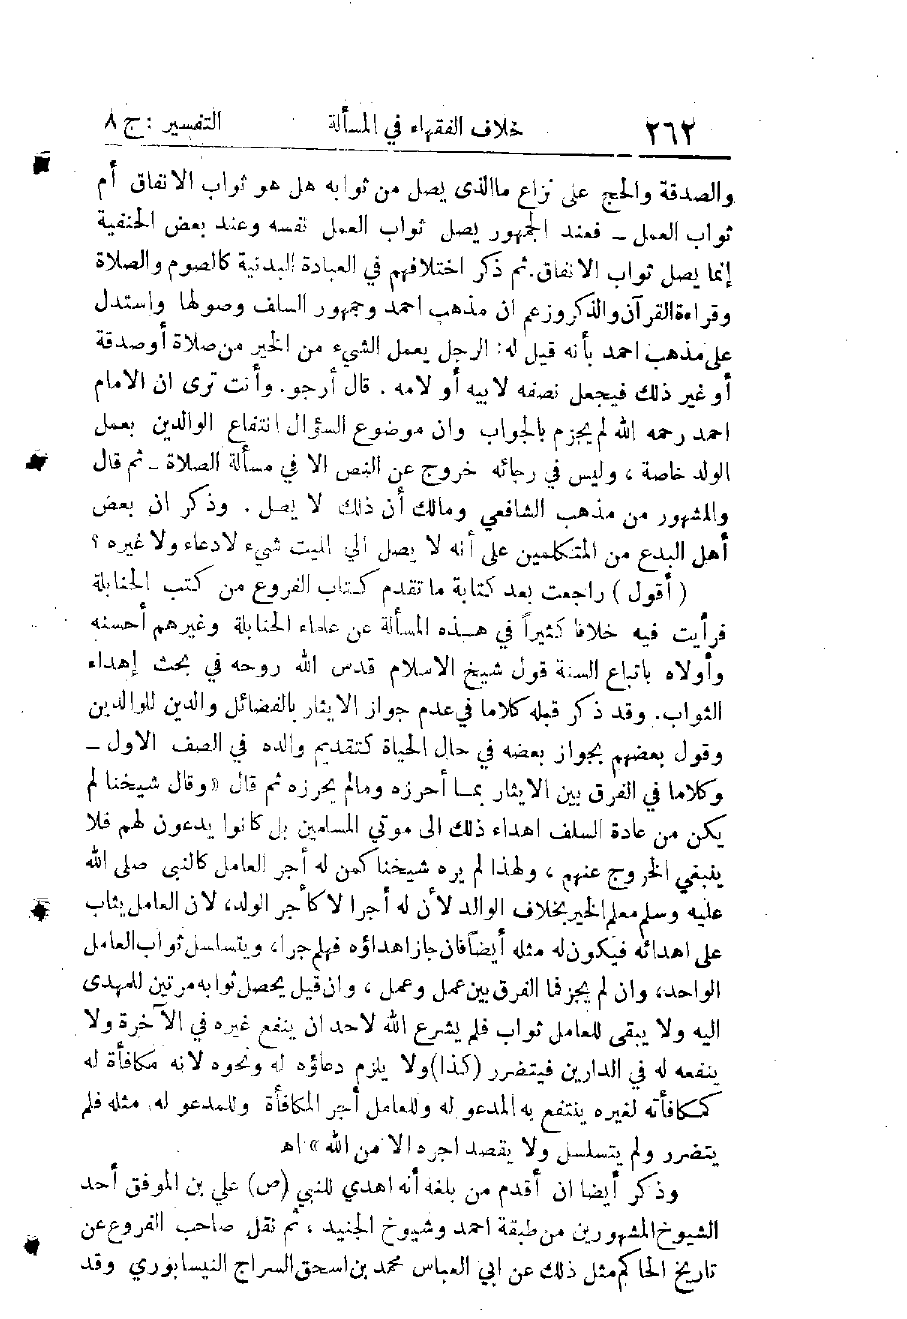 ٢٦٢ خلاف الفقهاء في المسألة التفسير : ج ٨
والصدقة والحج على نزاع ماالذى يصل من ثوابه هل هو ثواب الانفاق أم
ثواب العمل ــ فعند الجمهور يصل ثواب العمل نفسه وعند بعض الحنفية
إنما يصل ثواب الانفاق. ثم ذكر اختلافهم في العبادة البدنية كالصوم والصلاة
وقراءة القرآن والذكر وزعم ان مذهب احمد وجمهور السلف وصولها واستدل
على مذهب احمد بأنه قيل له: الرجل يعمل الشيء من الخير من صلاة أو صدقة
أو غير ذلك فيجعل نصفه لابيه أو لامه . قال أرجو. وأنت ترى ان الامام
احمد رحمه الله لم يجزم بالجواب وان موضوع السؤال انتفاع الوالدين بعمل
الولد خاصة ، وليس في رجائه خروج عن النص الا في مسألة الصلاة ــ ثم قال
والمشهور من مذهب الشافعي ومالك أن ذلك لا يصل . وذكر ان بعض
أهل البدع من المتكلمين على أنه لا يصل الى الميت شيء لا دعاء ولا غيره ؟
( أقول ) راجعت بعد كتابة ما تقدم كتاب الفروع من كتب الحنابلة
فرأيت فيه خلافا كثيراً في هـذه المسألة عن علماء الحنابلة وغيرهم أحسنه
وأولاه باتباع السنة قول شيخ الاسلام قدس الله روحه في بحث إهداء
الثواب. وقد ذكر قبله كلاما في عدم جواز الايثار بالفضائل والدين للوالدين
وقول بعضهم بجواز بعضه في حال الحياة كتقديم والده في الصف الاول ــ
وكلاما في الفرق بين الايثار بمـا أحرزه ومالم يحرزه ثم قال « وقال شيخنا لم
يكن من عادة السلف اهداء ذلك الى موتي المسلمين بل كانوا يدعون لهم فلا
ينبغي الخروج عنهم ، ولهذا لم يره شيخنا كمن له أجر العامل كالنبي صلى الله
عليه وسلم معلم الخير بخلاف الوالد لأن له أجرا لا كأجر الولد، لان العامل يثاب
على اهدائه فيكون له مثله أيضاً فان جاز اهداؤه فهلم جرا، ويتسلسل ثواب العامل
الواحد، وان لم يجز فما الفرق بين عمل وعمل ، وان قيل يحصل ثوابه مرتين للمهدى
اليه ولا يبقى للعامل ثواب فلم يشرع الله لاحد ان ينفع غيره في الآخرة ولا
ينفعه له في الدارين فيتضرر (كذا) ولا يلزم دعاؤه له ونحوه لانه مكافأة له
كمكافأته لغيره ينتفع به المدعو له وللعامل أجر المكافأة وللمدعو له مثله فلم
يتضرر ولم يتسلسل ولا يقصد اجره الا من الله » اهـ
وذكر أيضا ان أقدم من بلغه أنه اهدي للنبي (ص) علي بن الموفق أحد
الشيوخ المشهورين من طبقة احمد وشيوخ الجنيد ، ثم نقل صاحب الفروع عن
تاريخ الحاكم مثل ذلك عن ابي العباس محمد بن اسحق السراج النيسابوري وقد